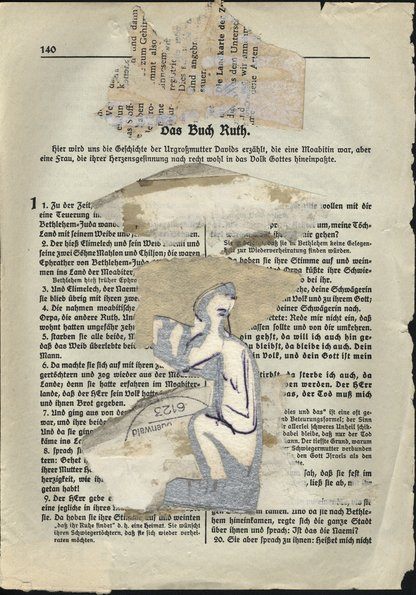 140
und dann)
zum Gehirn
immt also
sauer.
Die Landkarte der Z
aus dem Unters
wir annehm
Das Buch Ruth.
Hier wird uns die Geschichte der Urgroßmutter Davids erzählt, die eine Moabitin war, aber
eine Frau, die ihrer Herzensgesinnung nach recht wohl in das Volk Gottes hineinpaßte.
1
1. Zu der Zeit,
eine Teuerung i
Bethlehem-Juda wand
Land mit seinem Weibe
2. Der hieß Elimelech und sein Weib Naemi und
seine zwei Söhne Mahlon und Chiljon; die waren
Ephrather von Bethlehem-Juda
men ins Land der Moabiter
Bethlehem hieß früher Ephra
3. Und Elimelech, der Naemi
sie blieb übrig mit ihren zwei
4. Die nahmen moabitische
Orpa, die andere Ruth. Un
wohnt hatten ungefähr zehn
5. starben sie alle beide, M
daß das Weib überlebte bei
Mann.
6. Da machte sie sich auf mit ihren z
gertöchtern und zog wieder aus der Moabiter
Lande; denn sie hatte erfahren im Moabiter-
lande, daß der HErr sein Volk hatt
und ihnen Brot gegeben.
7. Und ging aus von de
war, und ihre beide
Und da sie ging
käme ins L
8. sprach si
tern: Gehet
ihrer Mutter H
herzigkeit, wie ih
getan habt!
9. Der HErr gebe e
eine jegliche in ihres M
se. Da hoben sie ihre Stimme auf und weinten
„daß ihr Ruhe findet“ d. h. eine Heimat. Sie wünscht
ihren Schwiegertöchtern, daß sie sich wieder verhei-
raten möchten.
6123
uenwald
wollen mit dir
um, meine Töch-
mir gehen?
in Bethlehem keine Gelegen-
heit zur Wiederverheiratung finden würden.
sie ihre Stimme auf und wein-
Orpa küßte ihre Schwie-
b bei ihr.
he, deine Schwägerin
Volk und zu ihrem Gott;
deiner Schwägerin nach.
rtete: Rede mir nicht ein, daß
assen sollte und von dir umkehren.
in gehst, da will ich auch hin ge-
u bleibst, da bleibe ich auch. Dein
in Volk, und dein Gott ist mein
stirbst, da sterbe ich auch, da
ben werden. Der HErr
as, der Tod muß mich
dies und das“ ist eine oft ge-
nd Beteuerungsformel; der Sinn
r allerlei schweres Unheil schik-
dabei bleibe, daß nur der Tod
kann. Der tiefste Grund, warum
Schwiegermutter verbunden
den Gott Israels als den
tte.
sah, daß sie fest im
, ließ sie ab,
kamen. Und da sie nach Bethle-
hem hineinkamen, regte sich die ganze Stadt
über ihnen und sprach: Ist das die Naemi?
20. Sie aber sprach zu ihnen: Heißet mich nicht